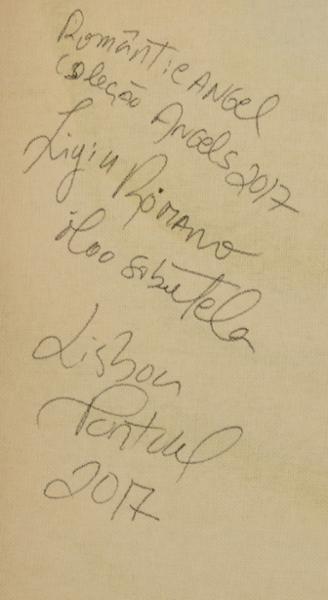 Romântic ANGEL
Coleção Angels 2017
Ligia Romano
óleo sobre Tela
Lisboa
Portugal
2017